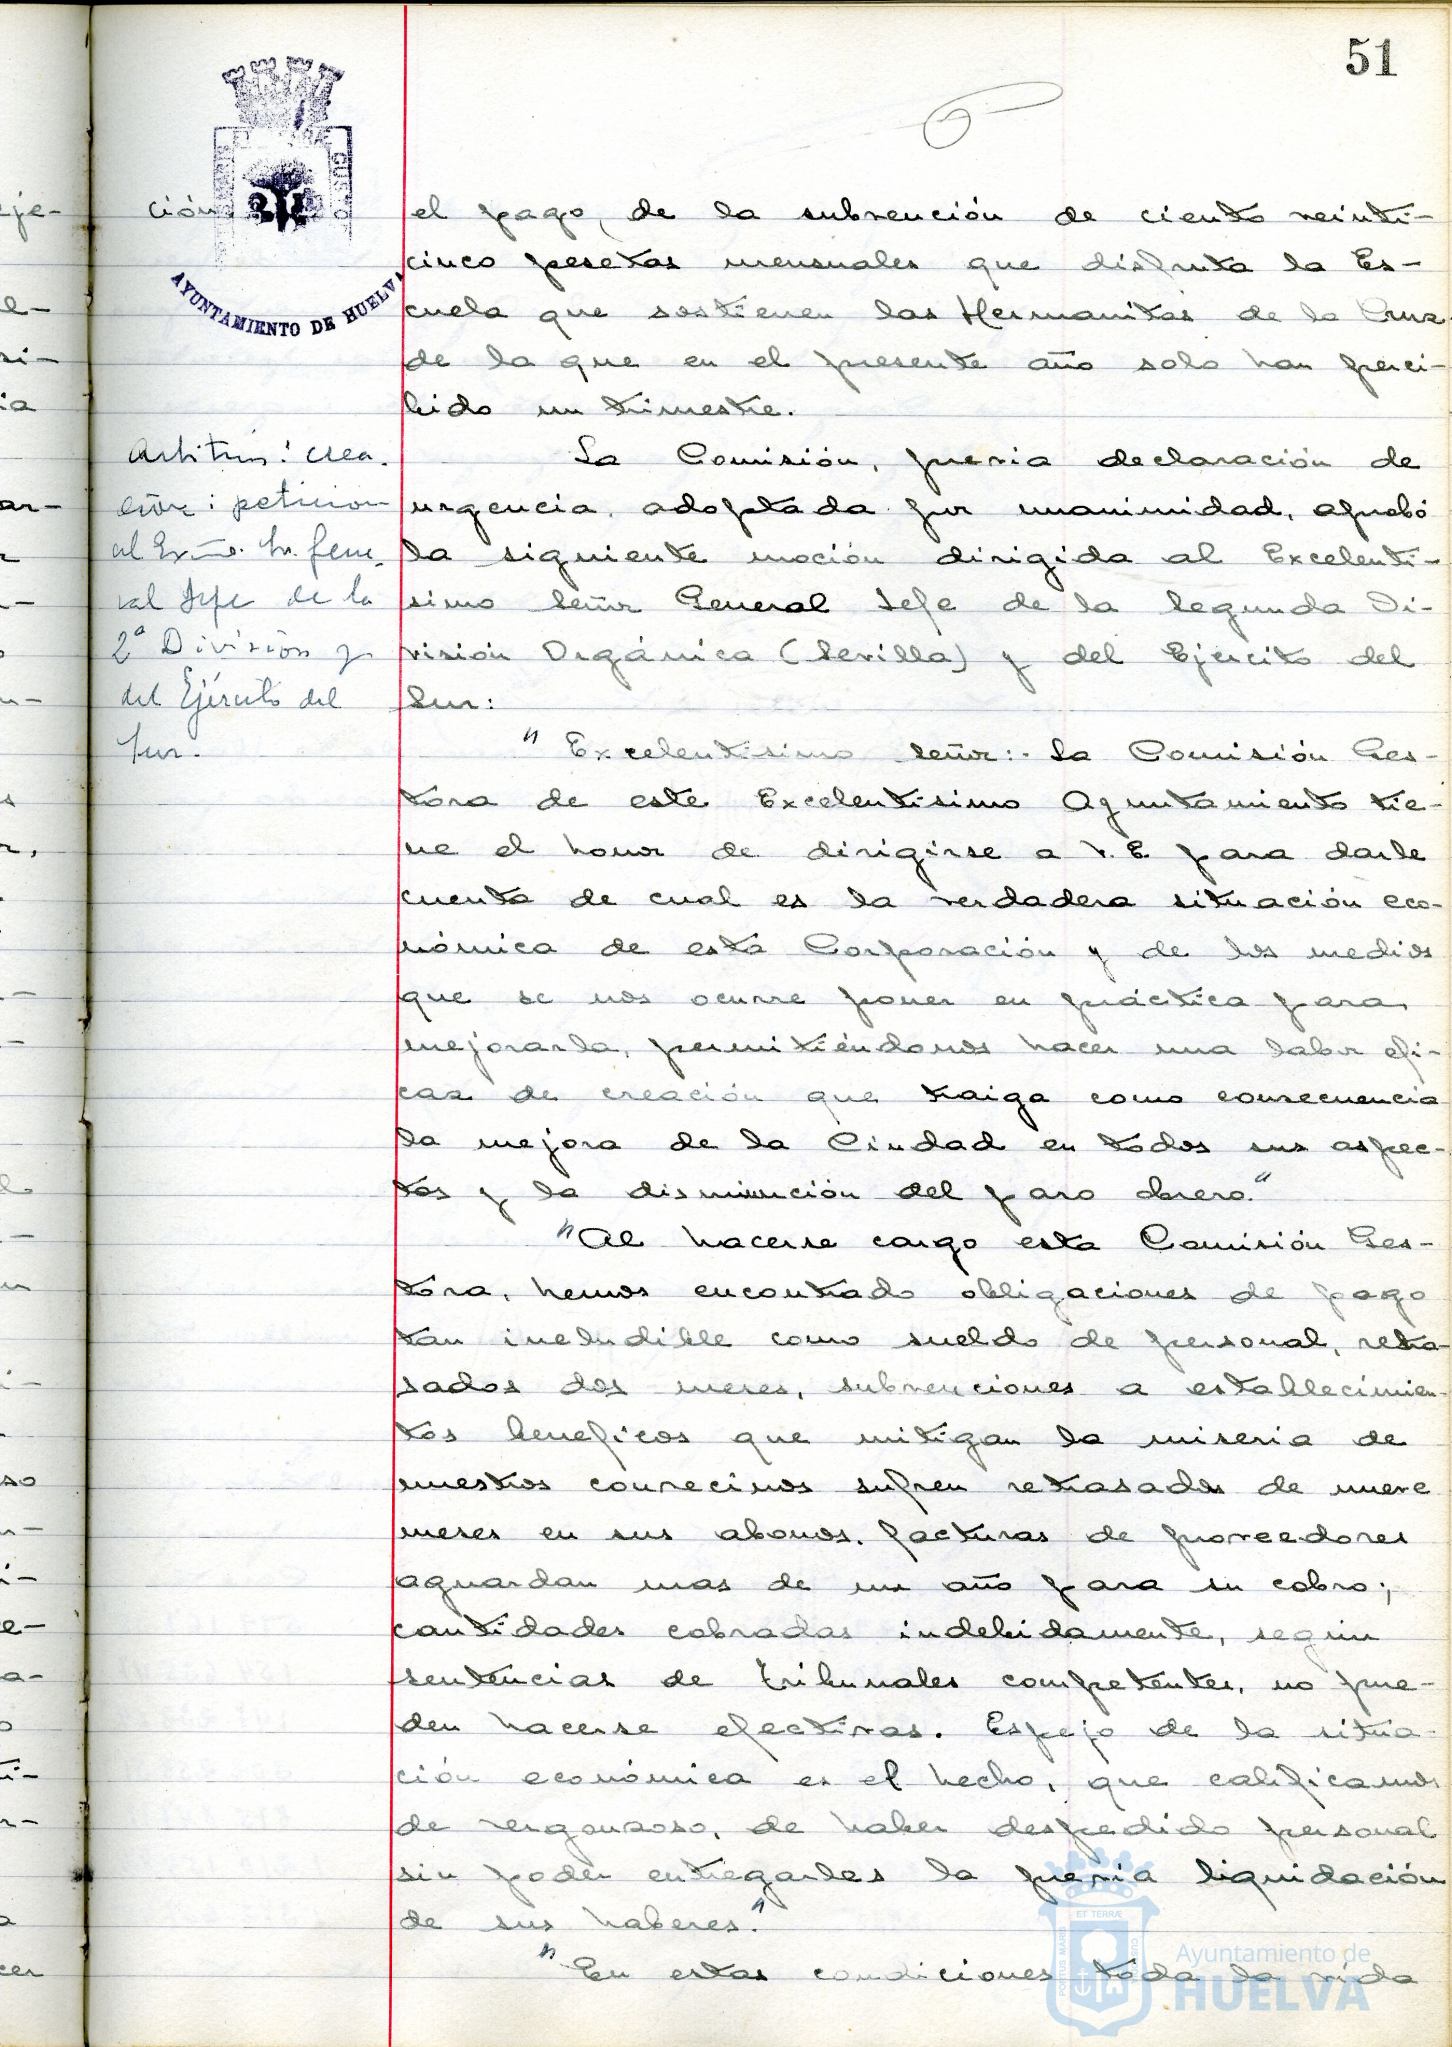 51
AYUNTAMIENTO DE HUELVA
ción
el pago, de la subvención de ciento veinti-
cinco pesetas mensuales que disfruta la Es-
cuela que sostienen las Hermanitas de la Cruz
de la que en el presente año solo han perci-
bido un trimestre.
Arbitrios: crea-
ción: petición
al Excmo. Sr. Gene-
ral Jefe de la
2ª División y
del Ejército del
Sur.
La Comisión, previa declaración de
urgencia, adoptada por unanimidad, aprobó
la siguiente moción dirigida al Excelenti-
simo Señor General Jefe de la Segunda Di-
visión Orgánica (Sevilla) y del Ejercito del
Sur:
"Excelentisimo señor:- La Comisión Ges-
tora de este Excelentisimo Ayuntamiento tie-
ne el honor de dirigirse a V.E. para darle
cuenta de cual es la verdadera situación eco-
nómica de esta Corporación y de los medios
que se nos ocurre poner en práctica para
mejorarla, permitiéndonos hacer una labor efi-
caz de creación que traiga como consecuencia
la mejora de la Ciudad en todos sus aspec-
tos y la disminución del paro obrero."
"Al hacerse cargo esta Comisión Ges-
tora, hemos encontrado obligaciones de pago
tan ineludible como sueldo de personal, retra-
sados dos meses, subvenciones a establecimien-
tos beneficos que mitigan la miseria de
nuestros convecinos sufren retrasados de nueve
meses en sus abonos. facturas de proveedores
aguardan mas de un año para su cobro;
cantidades cobradas indebidamente, según
sentencias de tribunales competentes, no pue-
den hacerse efectivas. Espejo de la situa-
ción económica es el hecho, que calificamos
de vergonzoso, de haber despedido personal
sin poder entregarles la previa liquidación
de sus haberes."
"En estas condiciones toda la vida
PORTUS MARIS ET TERRÆ CUSTODIO
Ayuntamiento de
HUELVA